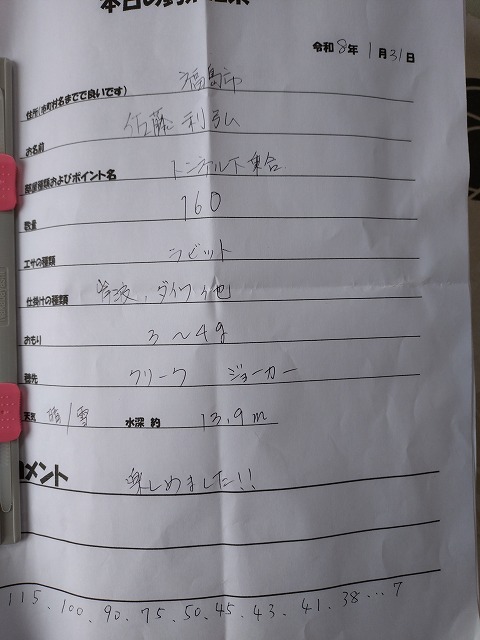 本日の釣果結果
令和8年 1月31日
住所(市町村名までで良いです) 福島市
お名前 佐藤 利弘
部屋種類およびポイント名 トンネル下乗合
数量 160
エサの種類 ラビット
仕掛けの種類 ダイワ 他
おもり 3～4g
穂先 クリーク ジョーカー
天気 晴/雪 水深 約 13.9m
コメント 楽しめました!!
115、100、90、75、50、45、43、41、38…7